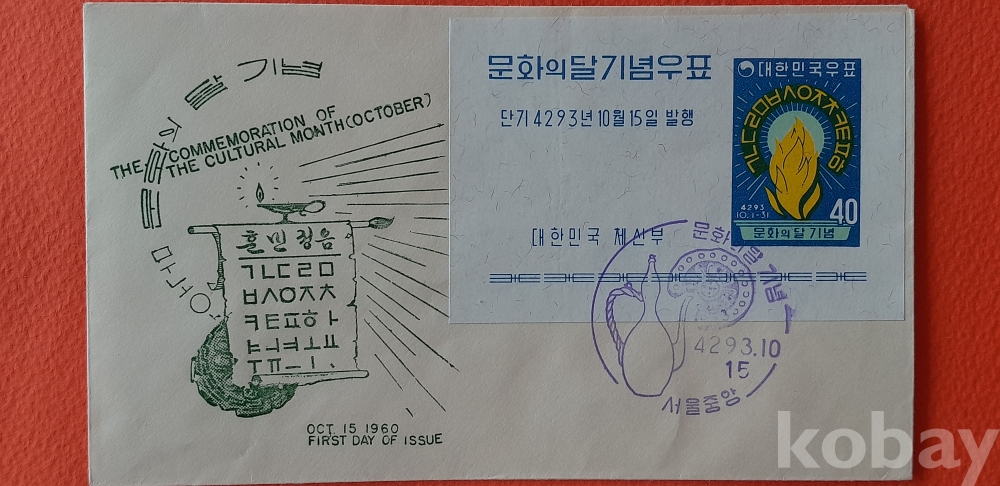 문화의 달 기념
THE COMMEMORATION OF
THE CULTURAL MONTH (OCTOBER)
훈민정음
ㄱㄴㄷㄹㅁ
ㅂㅅㅇㅈㅊ
ㅋㅌㅍㅎㅏ
ㅑㅓㅕㅗㅛ
ㅜㅠㅡㅣㆍ
OCT. 15 1960
FIRST DAY OF ISSUE
문화의달기념우표
단기 4293년 10월 15일 발행
대한민국 체신부
대한민국우표
ㄱㄴㄷㄹㅁㅂㅅㅇㅈㅊㅋㅌㅍㅎ
4293
10.1-31
40
문화의달기념
문화의 달 기념
4293.10
15
서울중앙
kobay